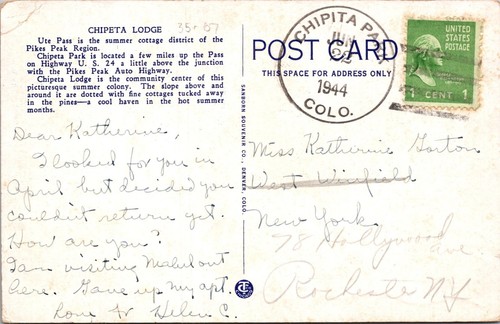 CHIPETA LODGE
35-07
Ute Pass is the summer cottage district of the
Pikes Peak Region.
Chipeta Park is located a few miles up the Pass
on Highway U. S. 24 a little above the junction
with the Pikes Peak Auto Highway.
Chipeta Lodge is the community center of this
picturesque summer colony. The slope above and
around it are dotted with fine cottages tucked away
in the pines—a cool haven in the hot summer
months.
Dear Katherine,
I looked for you in
April but decided you
couldn't return yet.
How are you?
I am visiting Mabel out
here. Gave up my apt.
Love Helen C.
SANBORN SOUVENIR CO., DENVER, COLO.
POST CARD
THIS SPACE FOR ADDRESS ONLY
CHIPITA PARK
JUN
1944
COLO.
UNITED
STATES
POSTAGE
1 CENT 1
Miss Katherine Gorton
West Winfield
New York
78 Hollywood
ave
Rochester NY